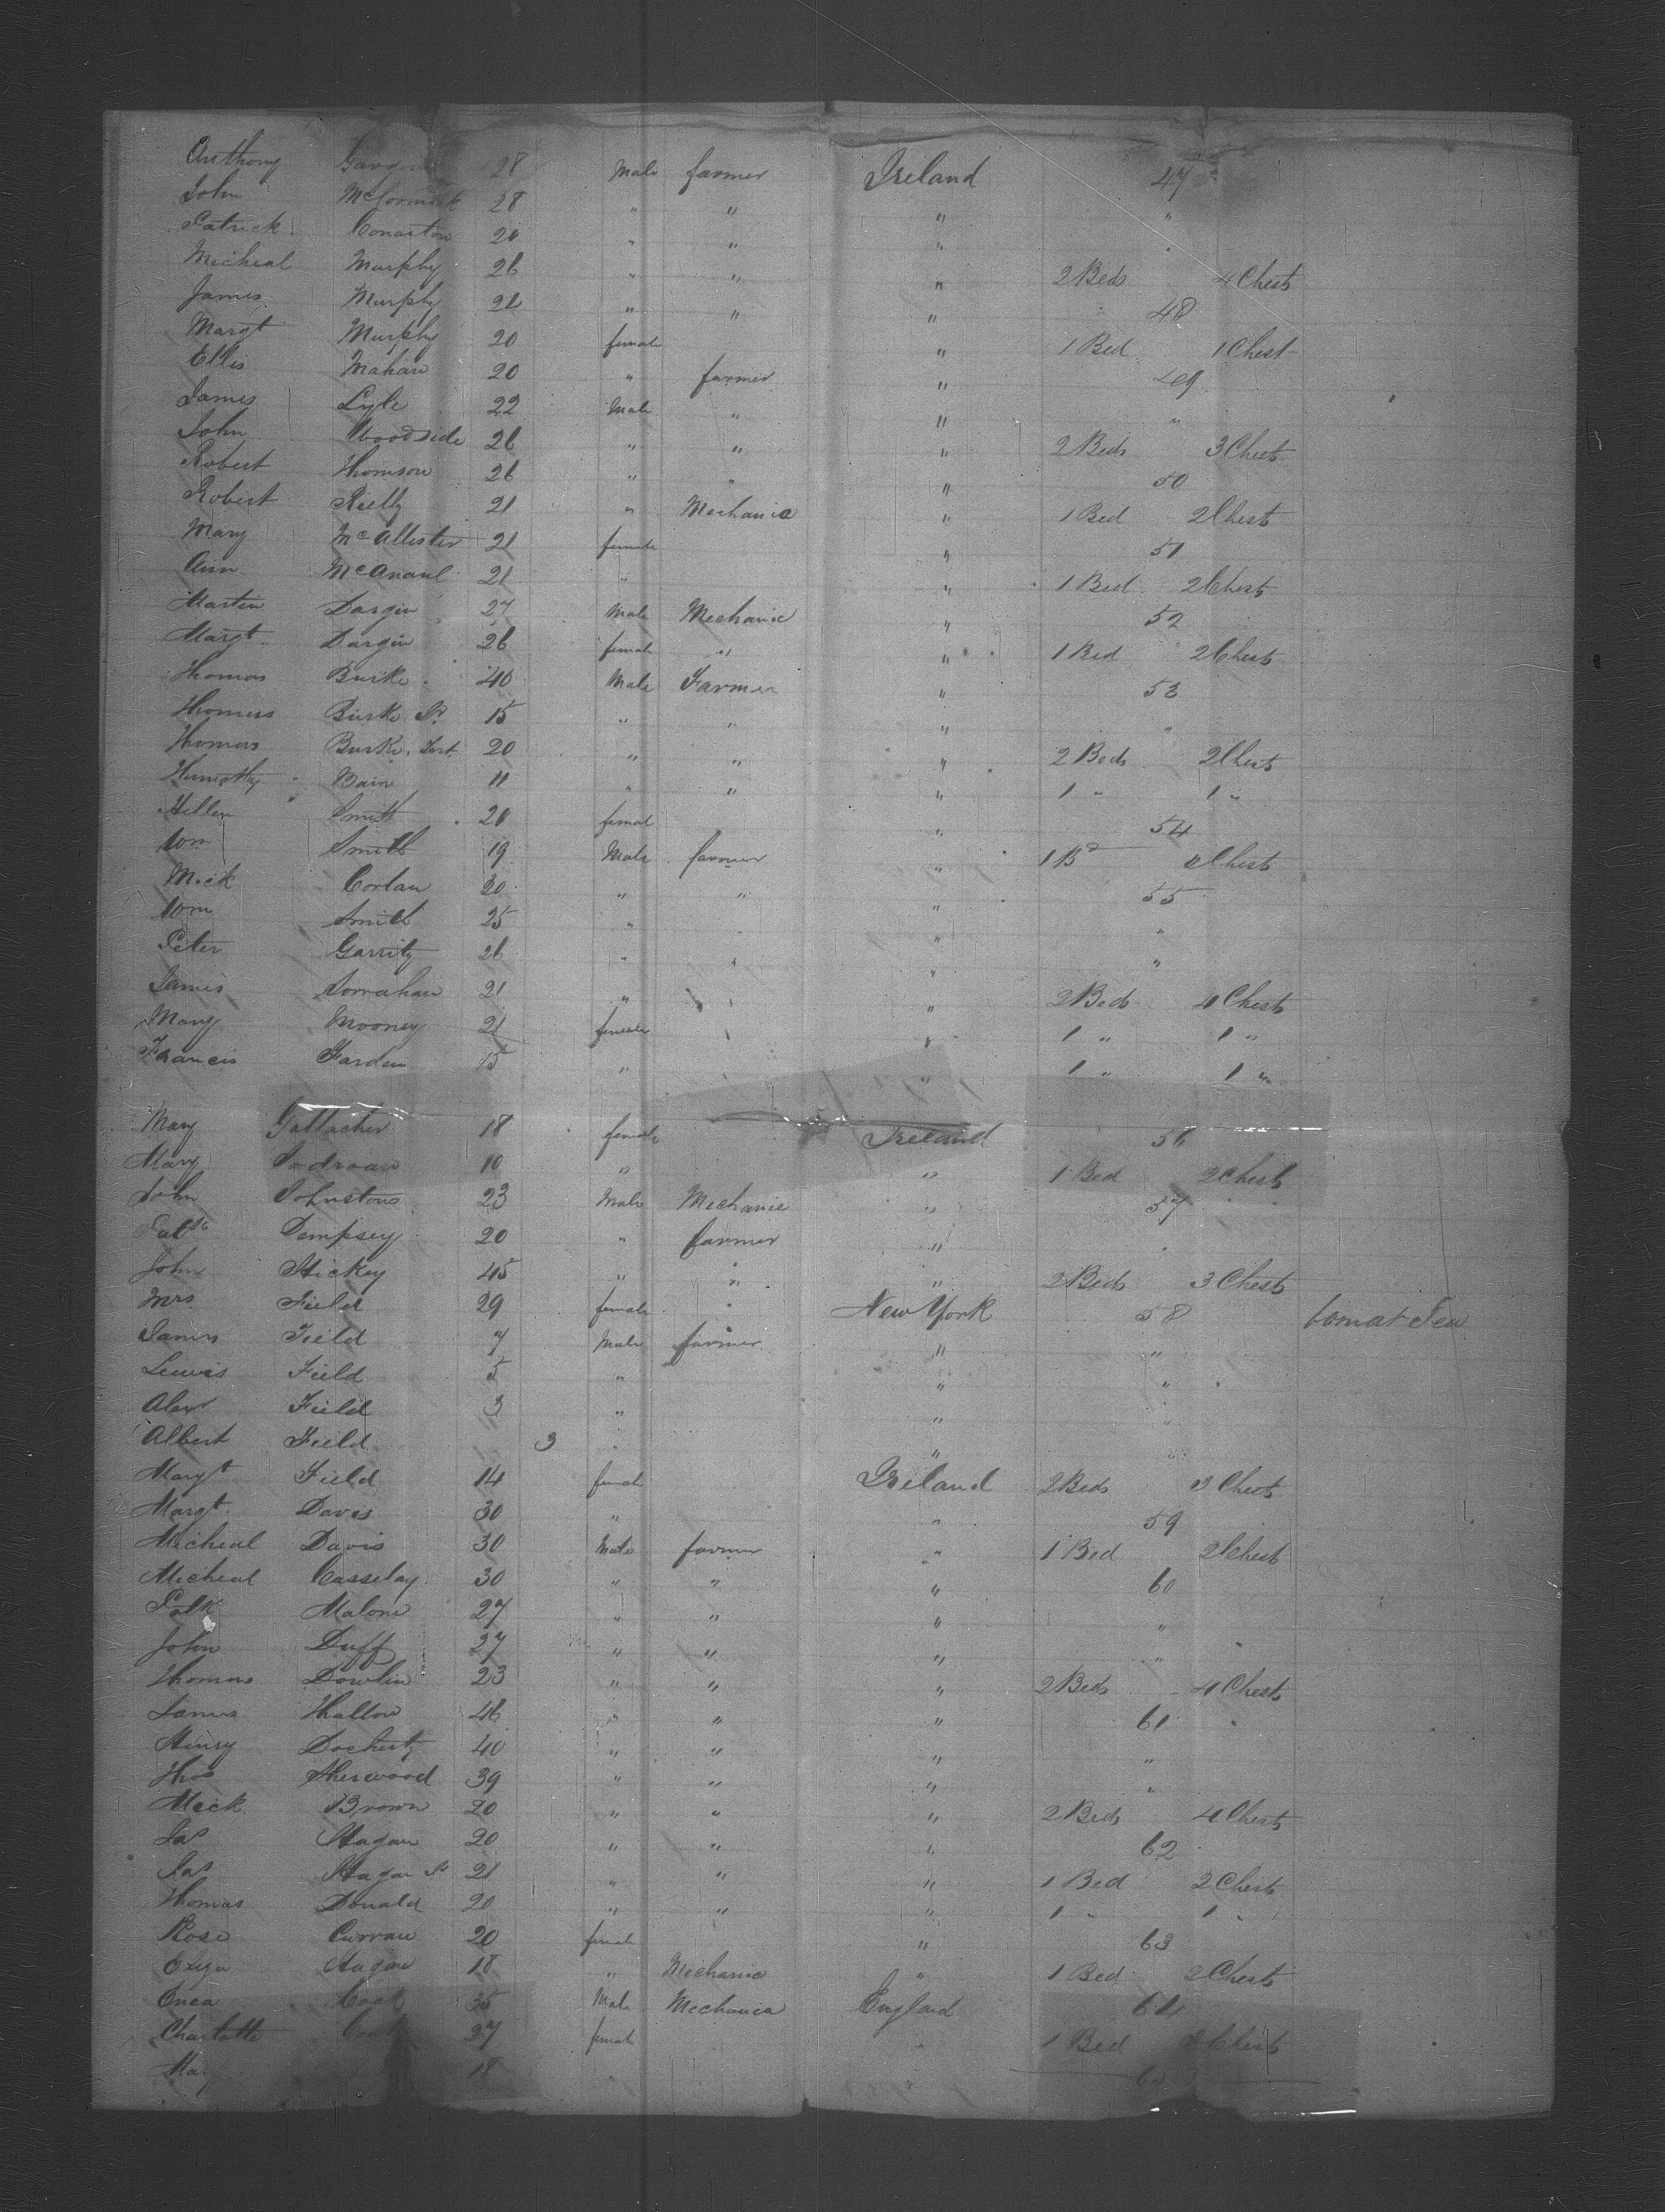 Anthony 28 Male farmer Ireland 47
John McCormick 28 " " " "
Patrick Conaston 20 " " " "
Micheal Murphy 26 " " " 2 Beds 4 Chests
James Murphy 22 " " " 48
Margt Murphy 20 female " 1 Bed 1 Chest
Ellis Mahan 20 " farmer " 49
James Lyle 22 Male " " "
John Woodside 26 " " " 2 Beds 3 Chests
Robert Thomson 26 " " " 50
Robert Rielly 21 " Mechanic " 1 Bed 2 Chests
Mary McAllister 21 female " 51
Ann McAnaul 21 " " 1 Bed 2 Chests
Martin Dargin 27 Male Mechanic " 52
Margt Dargin 26 female " " 1 Bed 2 Chests
Thomas Burke 40 Male Farmer " 53
Thomas Burke Jr 15 " " " "
Thomas Burke 20 " " " 2 Beds 2 Chests
Thimothy Bain 11 " " " 1 " 1 "
Hellen Smith 20 female " 54
Wm Smith 19 Male farmer " 1 Bd 2 Chests
Mick Corlan 20 " " " 55
Wm Smith 25 " " "
Peter Garrity 26 " " " "
James 21 " " " 2 Beds 4 Chests
Mary Mooney 21 female " 1 " 1 "
Francis Farden 15 " " 1 " 1 "
Mary Gallacher 18 female Ireland 56
Mary 10 " " 1 Bed 2 Chests
John Johnstone 23 Male Mechanic " 57
Patk Dempsey 20 " farmer " "
John Hickey 45 " " " 2 Beds 3 Chests
Mrs Field 29 female " New York 58
James Field 7 Male farmer " "
Lewis Field 5 " " "
Alexr Field 3 " " "
Albert Field 3 " " "
Margt Field 14 female Ireland 2 Beds 3 Chests
Margt Davis 30 " " 59
Micheal Davis 30 Male farmer " 1 Bed 2 Chests
Micheal Casselay 30 " " " 60
Patk Malone 27 " " " "
John Duff 27 " " " "
Thomas Dowlin 23 " " " 2 Beds 4 Chests
James Hallow 46 " " " 61
Henry Docherty 40 " " " "
Thos Sherwood 39 " " " "
Mick Brown 20 " " " 2 Beds 4 Chests
Jas Hagan 20 " " " 62
Jas Hagan Jr 21 " " " 1 Bed 2 Chests
Thomas Donald 20 " " " 1 " 1 "
Rose Curran 20 female " 63
Eliza Hagan 18 " Mechanic " 1 Bed 2 Chests
Cook 35 Male Mechanic England 64
Charlotte Cook 27 female " 1 Bed 2 Chests
Mary 18 " 65